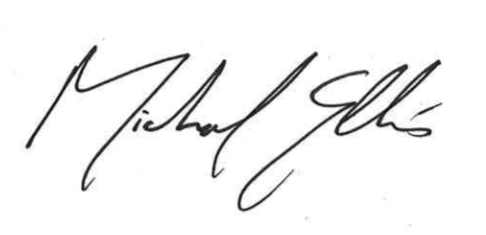 Michael Ellis